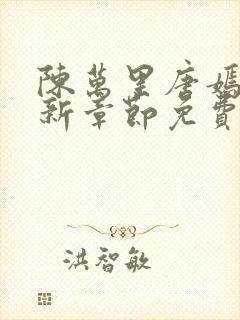 陳萬里唐嫣
新章節免費
洪智敏